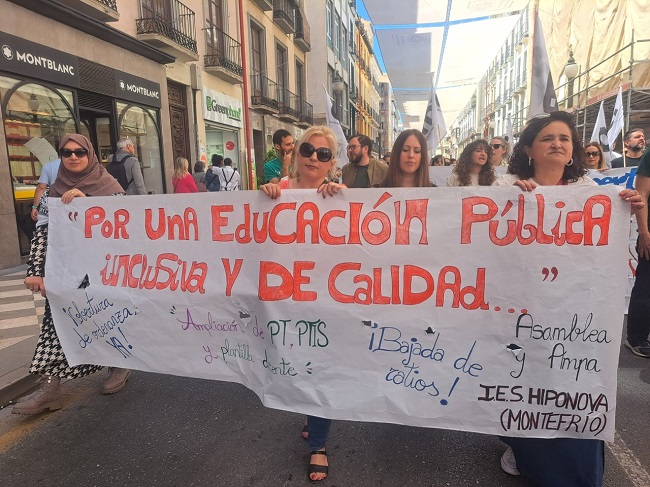 MONTBLANC
MONTBLANC
Greenphone
"POR UNA EDUCACIÓN PÚBLICA
INCLUSIVA Y DE CALIDAD... "
de
YA!
Ampliación de PT, PTIS
y plantilla
¡Bajada de
ratios!
Asamblea
y Ampa
I.E.S. HIPONOVA
(MONTEFRÍO)